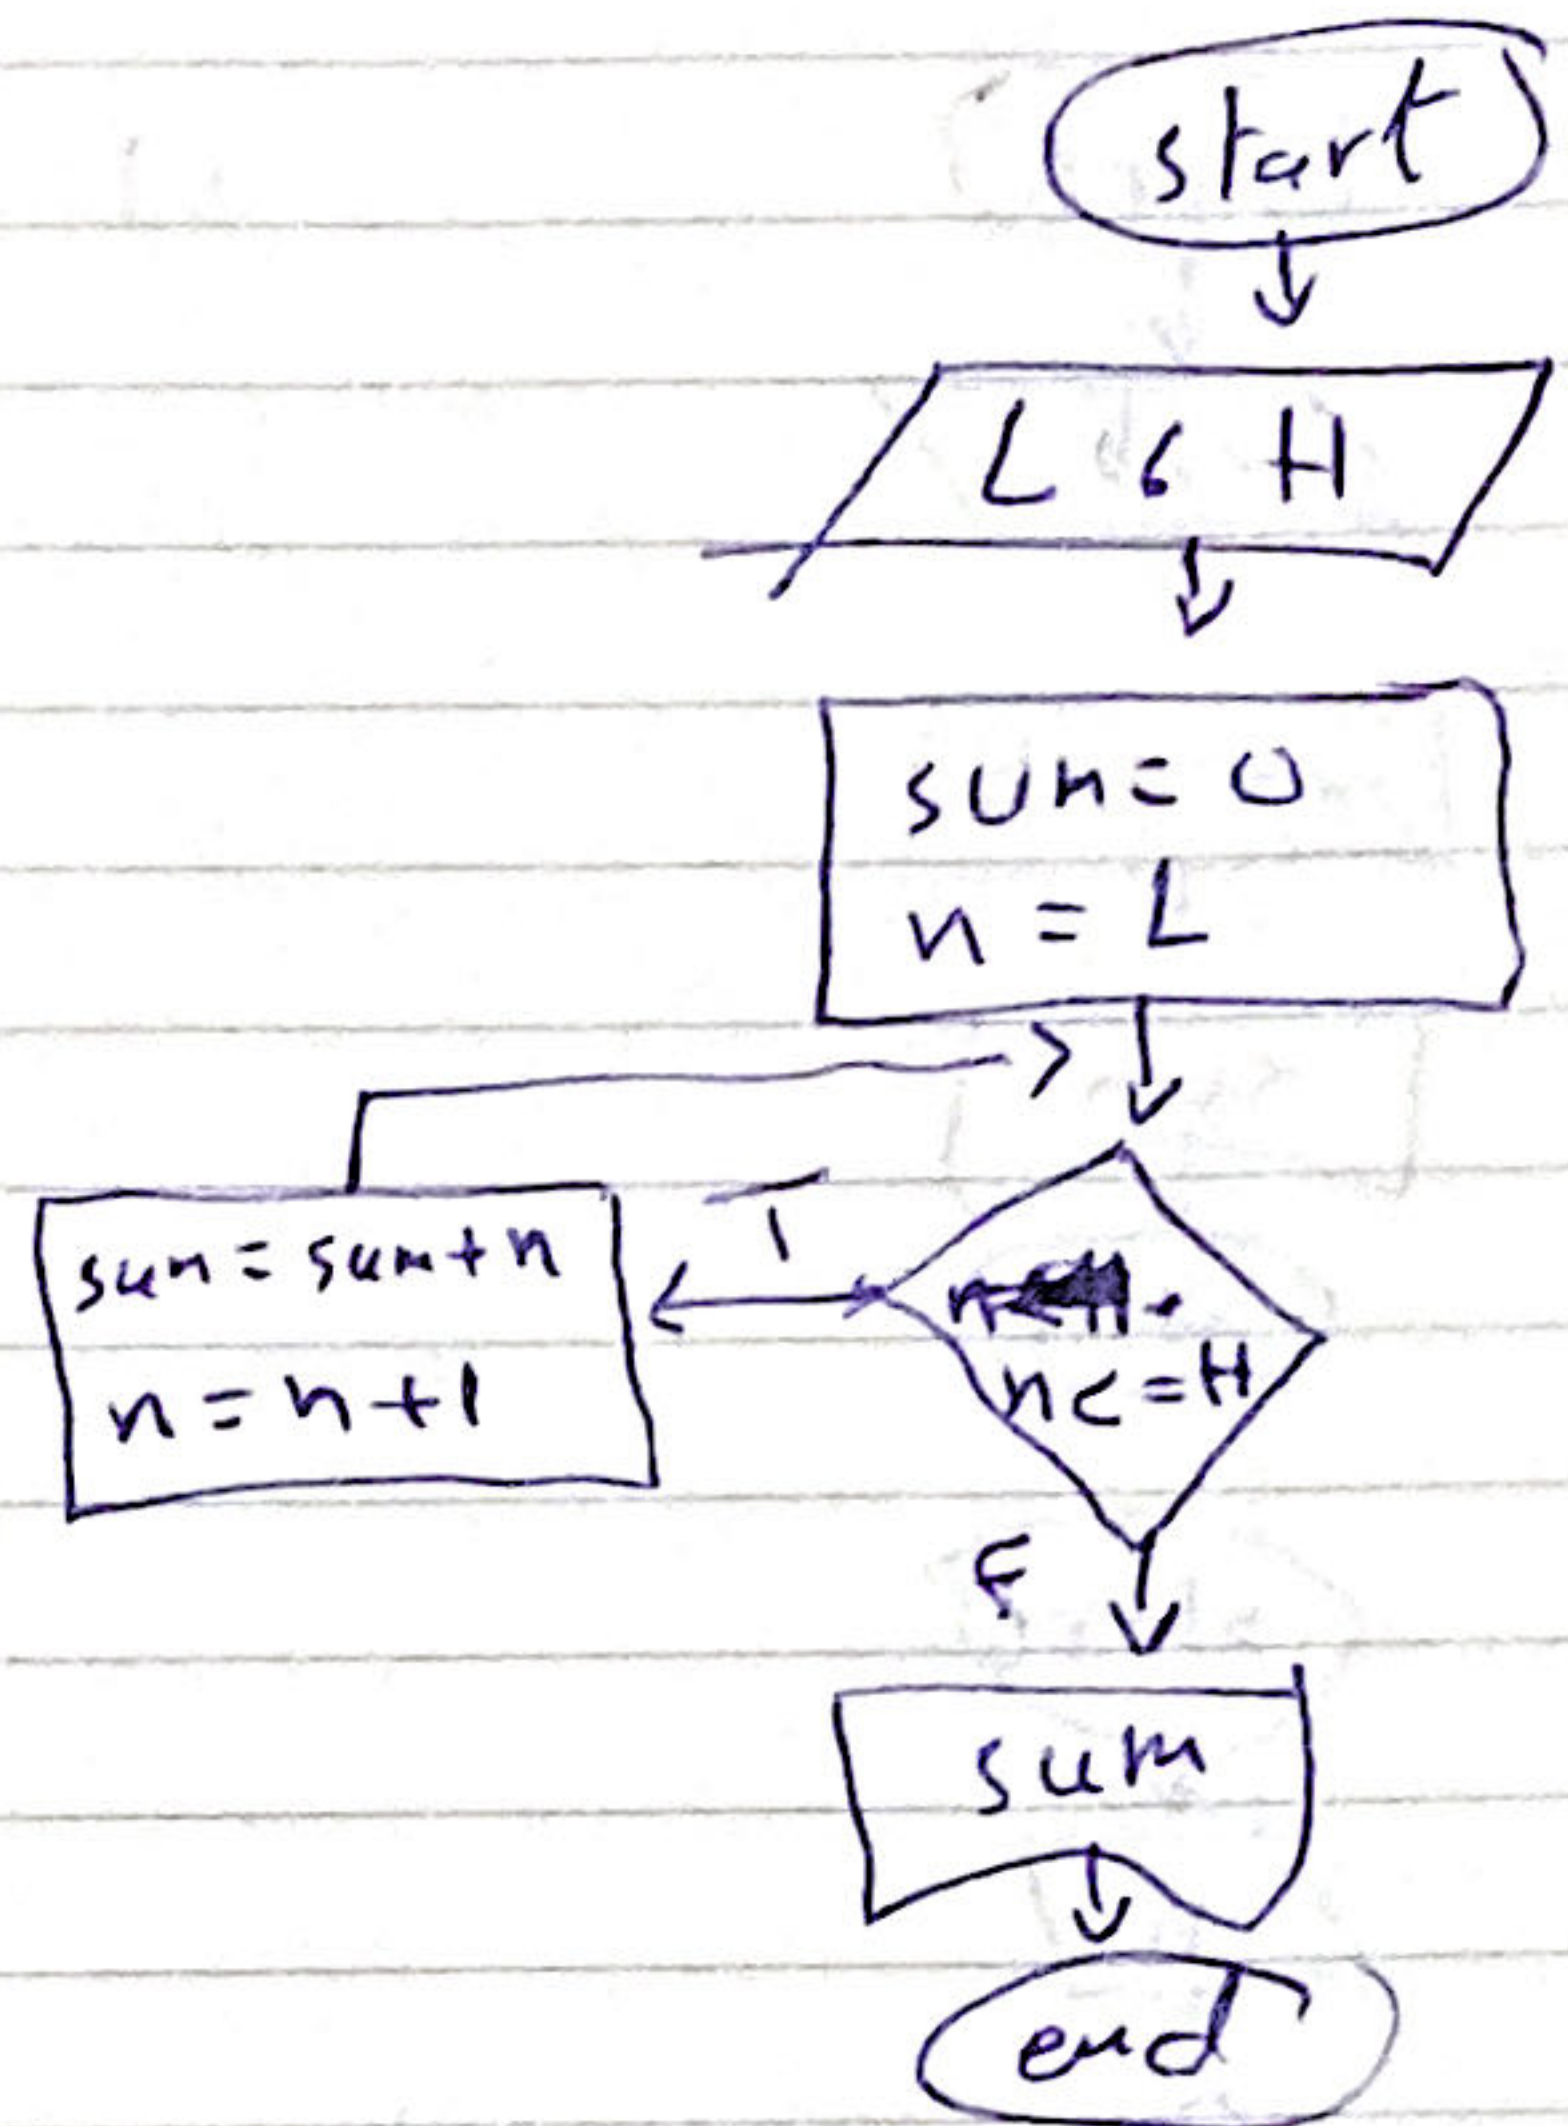 start
L , H
sum = 0
n = L
T
sum = sum + n
n = n + 1
n <= H
F
sum
end